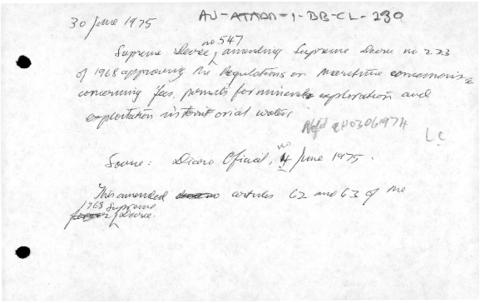 30 June 1975
AU-ATADD-1-BB-CL-230
Supreme Decree no 547, amending Supreme Decree no 223
of 1968 approving the Regulations on Maritime concessions
concerning fees, permits for minerals exploration and
exploitation in territorial waters
L.C
Source: Diario Oficial, no 4 June 1975.
This amended articles 62 and 63 of the
1968 Supreme
Decree.